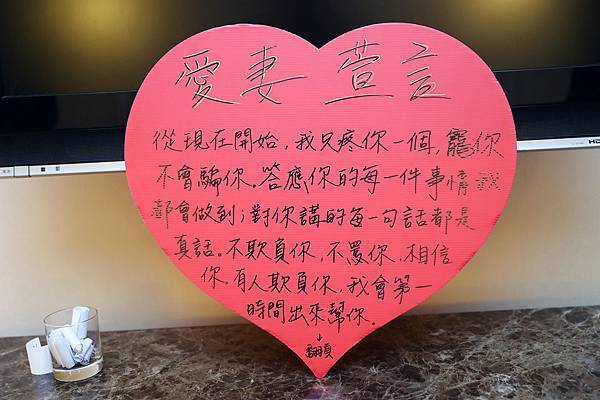 愛妻萱言
從現在開始，我只疼你一個，寵你
不會騙你，答應你的每一件事情我
都會做到；對你講的每一句話都是
真話。不欺負你，不罵你，相信
你，有人欺負你，我會第一
時間出來幫你。
↓
翻頁
HD